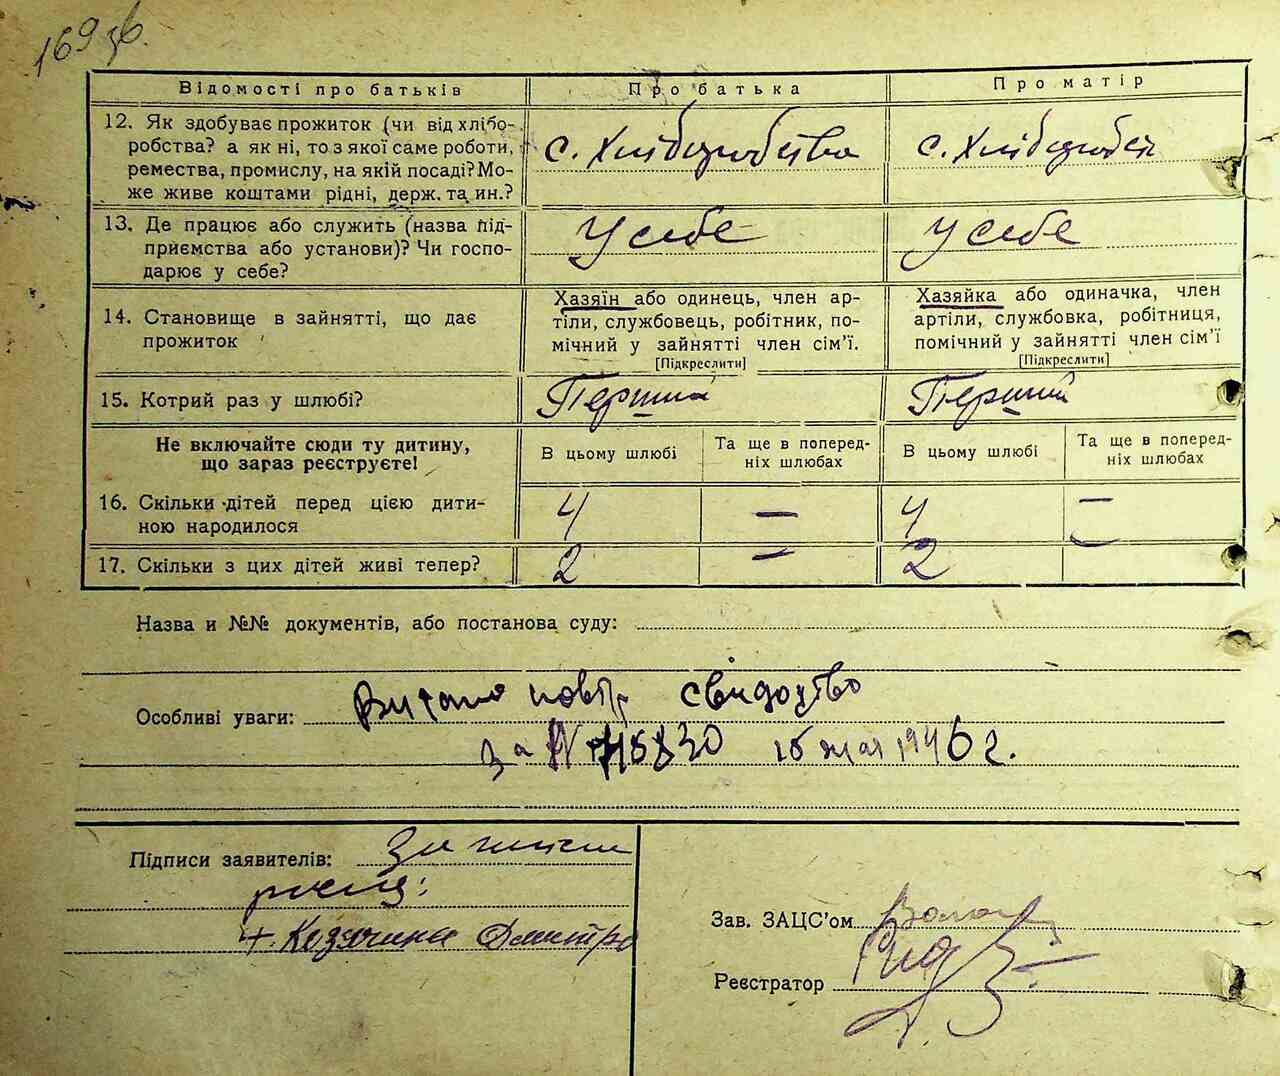 169 зв.
Відомості про батьків
Про батька
Про матір
12. Як здобуває прожиток (чи від хлібо-
робства? а як ні, то з якої саме роботи,
ремества, промислу, на якій посаді? Мо-
же живе коштами рідні, держ. та ин.?
с. Хліборобство
с. Хлібороб
13. Де працює або служить (назва під-
приємства або установи)? Чи госпо-
дарює у себе?
У себе
У себе
14. Становище в зайнятті, що дає
прожиток
Хазяїн або одинець, член ар-
тіли, службовець, робітник, по-
мічний у зайнятті член сім'ї.
[Підкреслити]
Хазяйка або одиначка, член
артіли, службовка, робітниця,
помічний у зайнятті член сім'ї
[Підкреслити]
15. Котрий раз у шлюбі?
Перший
Перший
Не включайте сюди ту дитину,
що зараз реєструєте!
В цьому шлюбі
Та ще в поперед-
ніх шлюбах
В цьому шлюбі
Та ще в поперед-
ніх шлюбах
16. Скільки дітей перед цією дити-
ною народилося
4
—
4
—
17. Скільки з цих дітей живі тепер?
2
—
2
—
Назва и №№ документів, або постанова суду:
Особливі уваги: Видано повтр свидоцтво
за № 15 мая 1946 г.
Підписи заявителів:
+ Козячина Дмитро
Зав. ЗАЦС'ом
Реєстратор